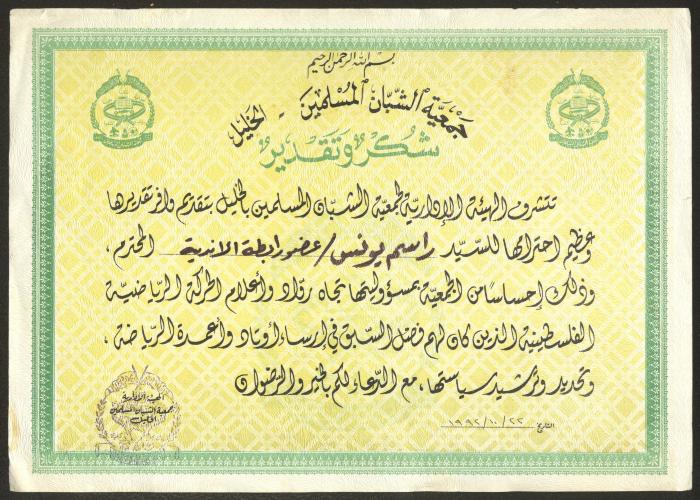 بسم الله الرحمن الرحيم
جمعية الشبان المسلمين - الخليل
شكر وتقدير
تتشرف الهيئة الإدارية لجمعية الشبان المسلمين بالخليل بتقديم وافر تقديرها
وعظيم احترامها للسيد راسم يونس / عضو رابطة الأندية المحترم ،
وذلك إحساسا من الجمعية بمسؤوليتها تجاه رواد وأعلام الحركة الرياضية
الفلسطينية الذين كان لهم فضل السبق في إرساء أوتاد وأعمدة الرياضة ،
وتحديد وترشيد سياستها ، مع الدعاء لكم بالخير والرضوان
التاريخ ١٩٩٢/١٠/٢٢
الهيئة الإدارية
جمعية الشبان المسلمين
الخليل